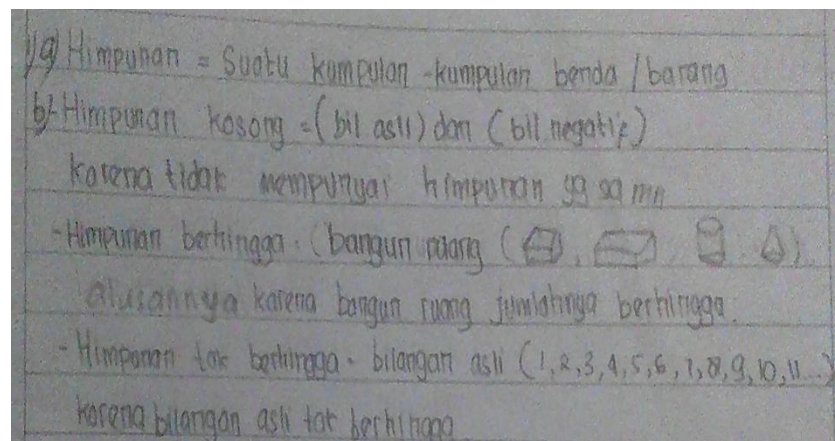 1) a) Himpunan = Suatu kumpulan-kumpulan benda / barang
b) - Himpunan kosong = (bil asli) dan (bil negatif)
karena tidak mempunyai himpunan yg sama
- Himpunan berhingga = (bangun ruang ( , , , )
alasannya karena bangun ruang jumlahnya berhingga.
- Himpunan tak berhingga = bilangan asli (1,2,3,4,5,6,7,8,9,10,11...)
karena bilangan asli tak berhingga